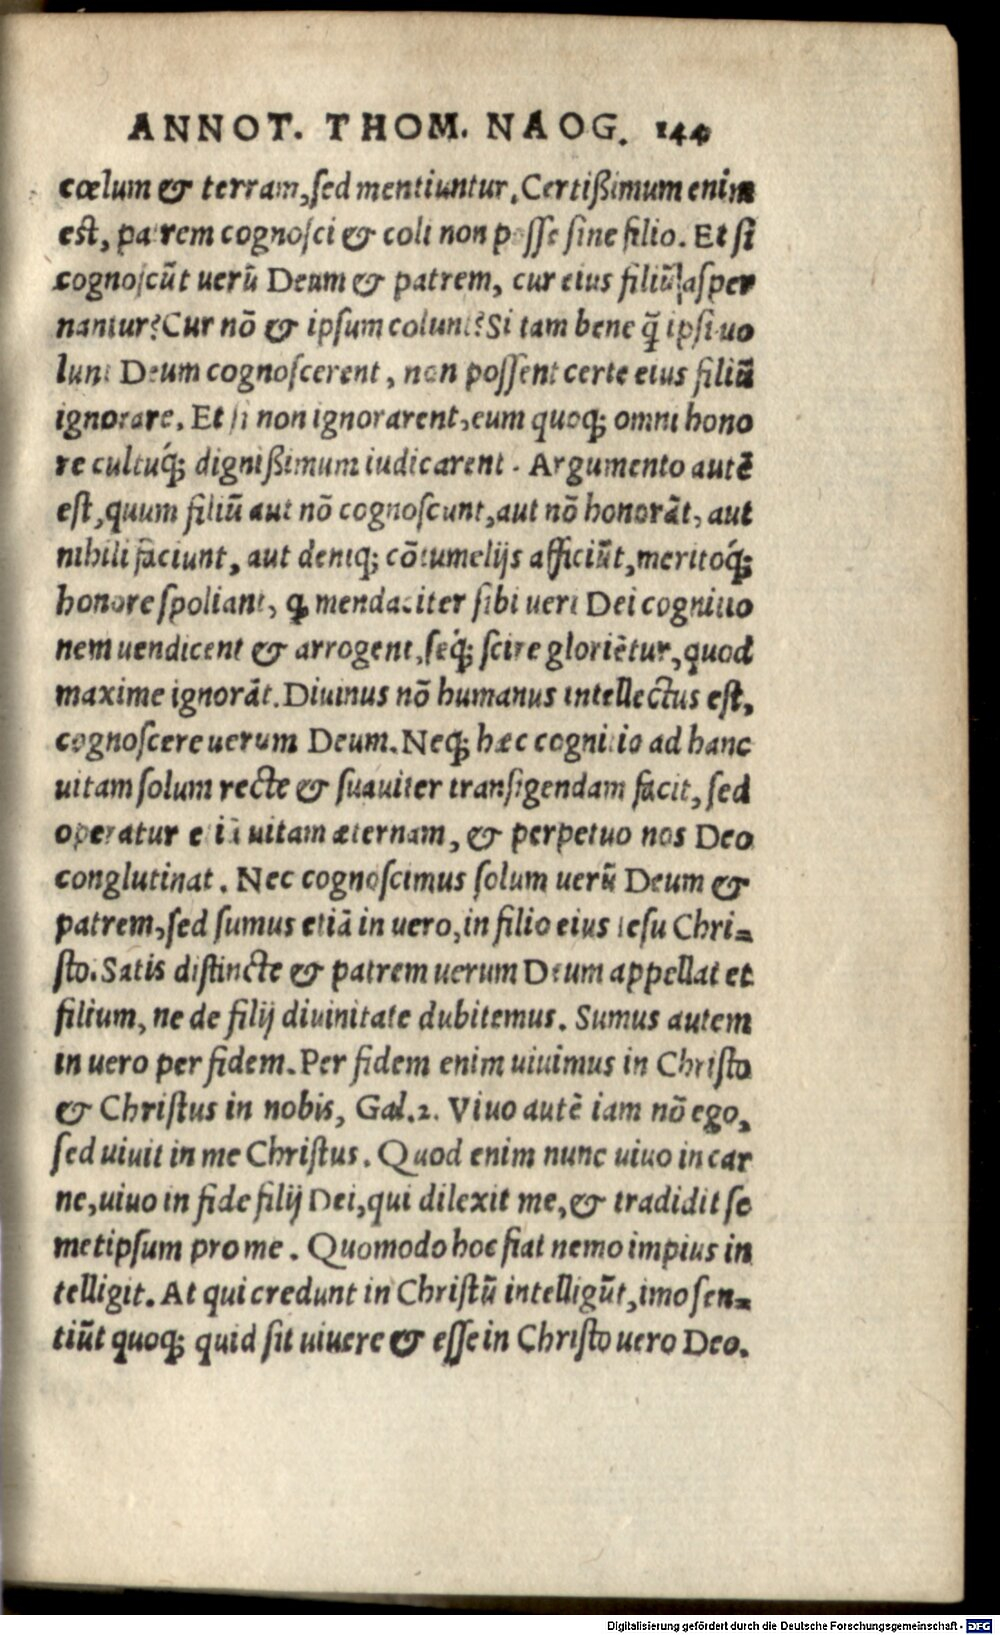 ANNOT. THOM. NAOG. 144
cœlum & terram, sed mentiuntur. Certißimum enim
est, patrem cognosci & coli non posse sine filio. Et si
cognoscūt uerū Deum & patrem, cur eius filiū asper
nantur? Cur nō & ipsum colunt? Si tam bene q̄ ipsi uo
lunt Deum cognoscerent, non possent certe eius filiū
ignorare. Et si non ignorarent, eum quoq; omni hono
re cultuq́; dignißimum iudicarent. Argumento autē
est, quum filiū aut nō cognoscunt, aut nō honorāt, aut
nihili faciunt, aut deniq; cōtumelijs afficiūt, meritoq́;
honore spoliant, ꝙ mendaciter sibi ueri Dei cognitio
nem uendicent & arrogent, seq́; scire gloriētur, quod
maxime ignorāt. Diuinus nō humanus intellectus est,
cognoscere uerum Deum. Neq; hæc cognitio ad hanc
uitam solum recte & suauiter transigendam facit, sed
operatur etiā uitam æternam, & perpetuo nos Deo
conglutinat. Nec cognoscimus solum uerū Deum &
patrem, sed sumus etiā in uero, in filio eius Iesu Chri-
sto. Satis distincte & patrem uerum Deum appellat et
filium, ne de filij diuinitate dubitemus. Sumus autem
in uero per fidem. Per fidem enim uiuimus in Christo
& Christus in nobis, Gal. 2. Viuo autē iam nō ego,
sed uiuit in me Christus. Quod enim nunc uiuo in car
ne, uiuo in fide filij Dei, qui dilexit me, & tradidit se
metipsum pro me. Quomodo hoc fiat nemo impius in
telligit. At qui credunt in Christū intelligūt, imo sen-
tiūt quoq; quid sit uiuere & esse in Christo uero Deo.
Digitalisierung gefördert durch die Deutsche Forschungsgemeinschaft - DFG